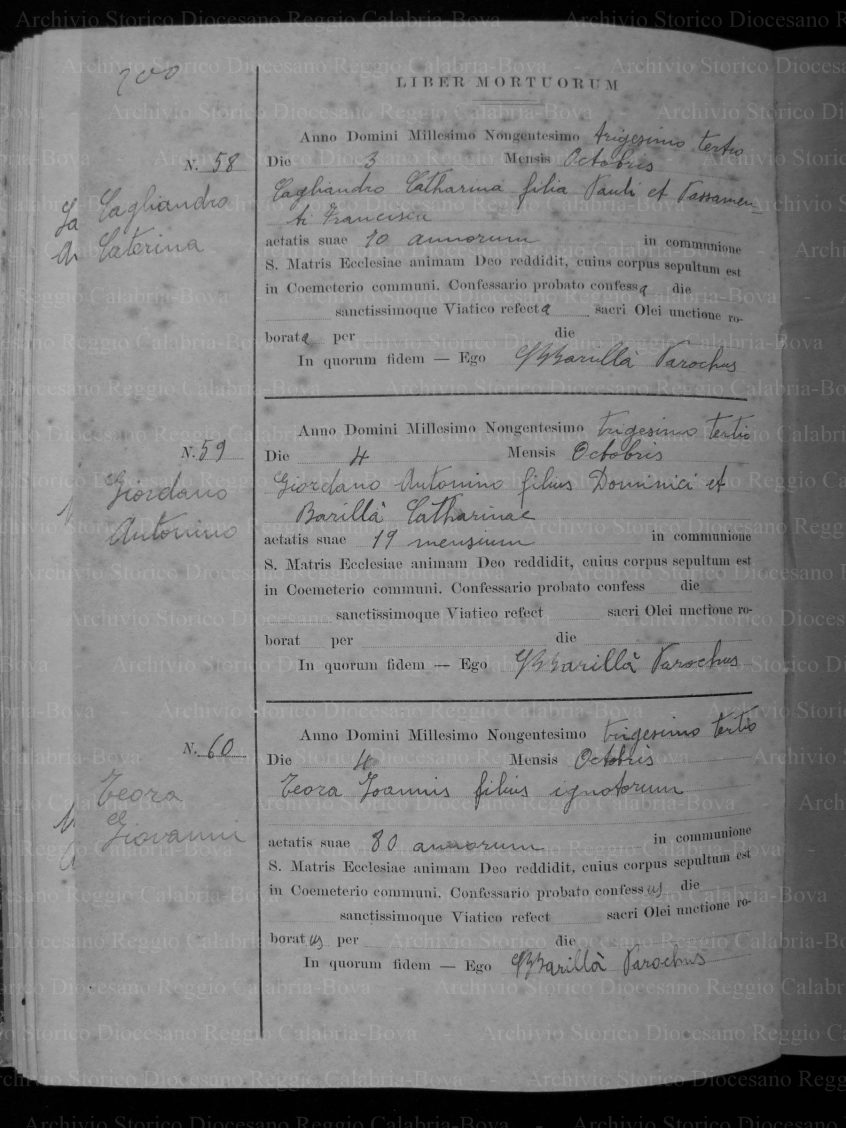 200
LIBER MORTUORUM
Anno Domini Millesimo Nongentesimo trigesimo tertio
N. 58
Die 3 Mensis Octobris
Cagliandro
Caterina
Cagliandro Catharina filia Pauli et Passamen-
ti Francisca
aetatis suae 10 annorum in communione
S. Matris Ecclesiae animam Deo reddidit, cuius corpus sepultum est
in Coemeterio communi. Confessario probato confessa die
sanctissimoque Viatico refecta sacri Olei unctione ro-
borata per die
In quorum fidem — Ego Barillà Parochus
Anno Domini Millesimo Nongentesimo trigesimo tertio
N. 59
Die 4 Mensis Octobris
Giordano
Antonino
Giordano Antonino filius Dominici et
Barillà Catharinae
aetatis suae 19 mensium in communione
S. Matris Ecclesiae animam Deo reddidit, cuius corpus sepultum est
in Coemeterio communi. Confessario probato confess die
sanctissimoque Viatico refect sacri Olei unctione ro-
borat per die
In quorum fidem — Ego Barillà Parochus
Anno Domini Millesimo Nongentesimo trigesimo tertio
N. 60
Die 4 Mensis Octobris
Teora
Giovanni
Teora Joannis filius ignotorum
aetatis suae 80 annorum in communione
S. Matris Ecclesiae animam Deo reddidit, cuius corpus sepultum est
in Coemeterio communi. Confessario probato confessus die
sanctissimoque Viatico refect sacri Olei unctione ro-
boratus per die
In quorum fidem — Ego Barillà Parochus
Archivio Storico Diocesano Reggio Calabria-Bova